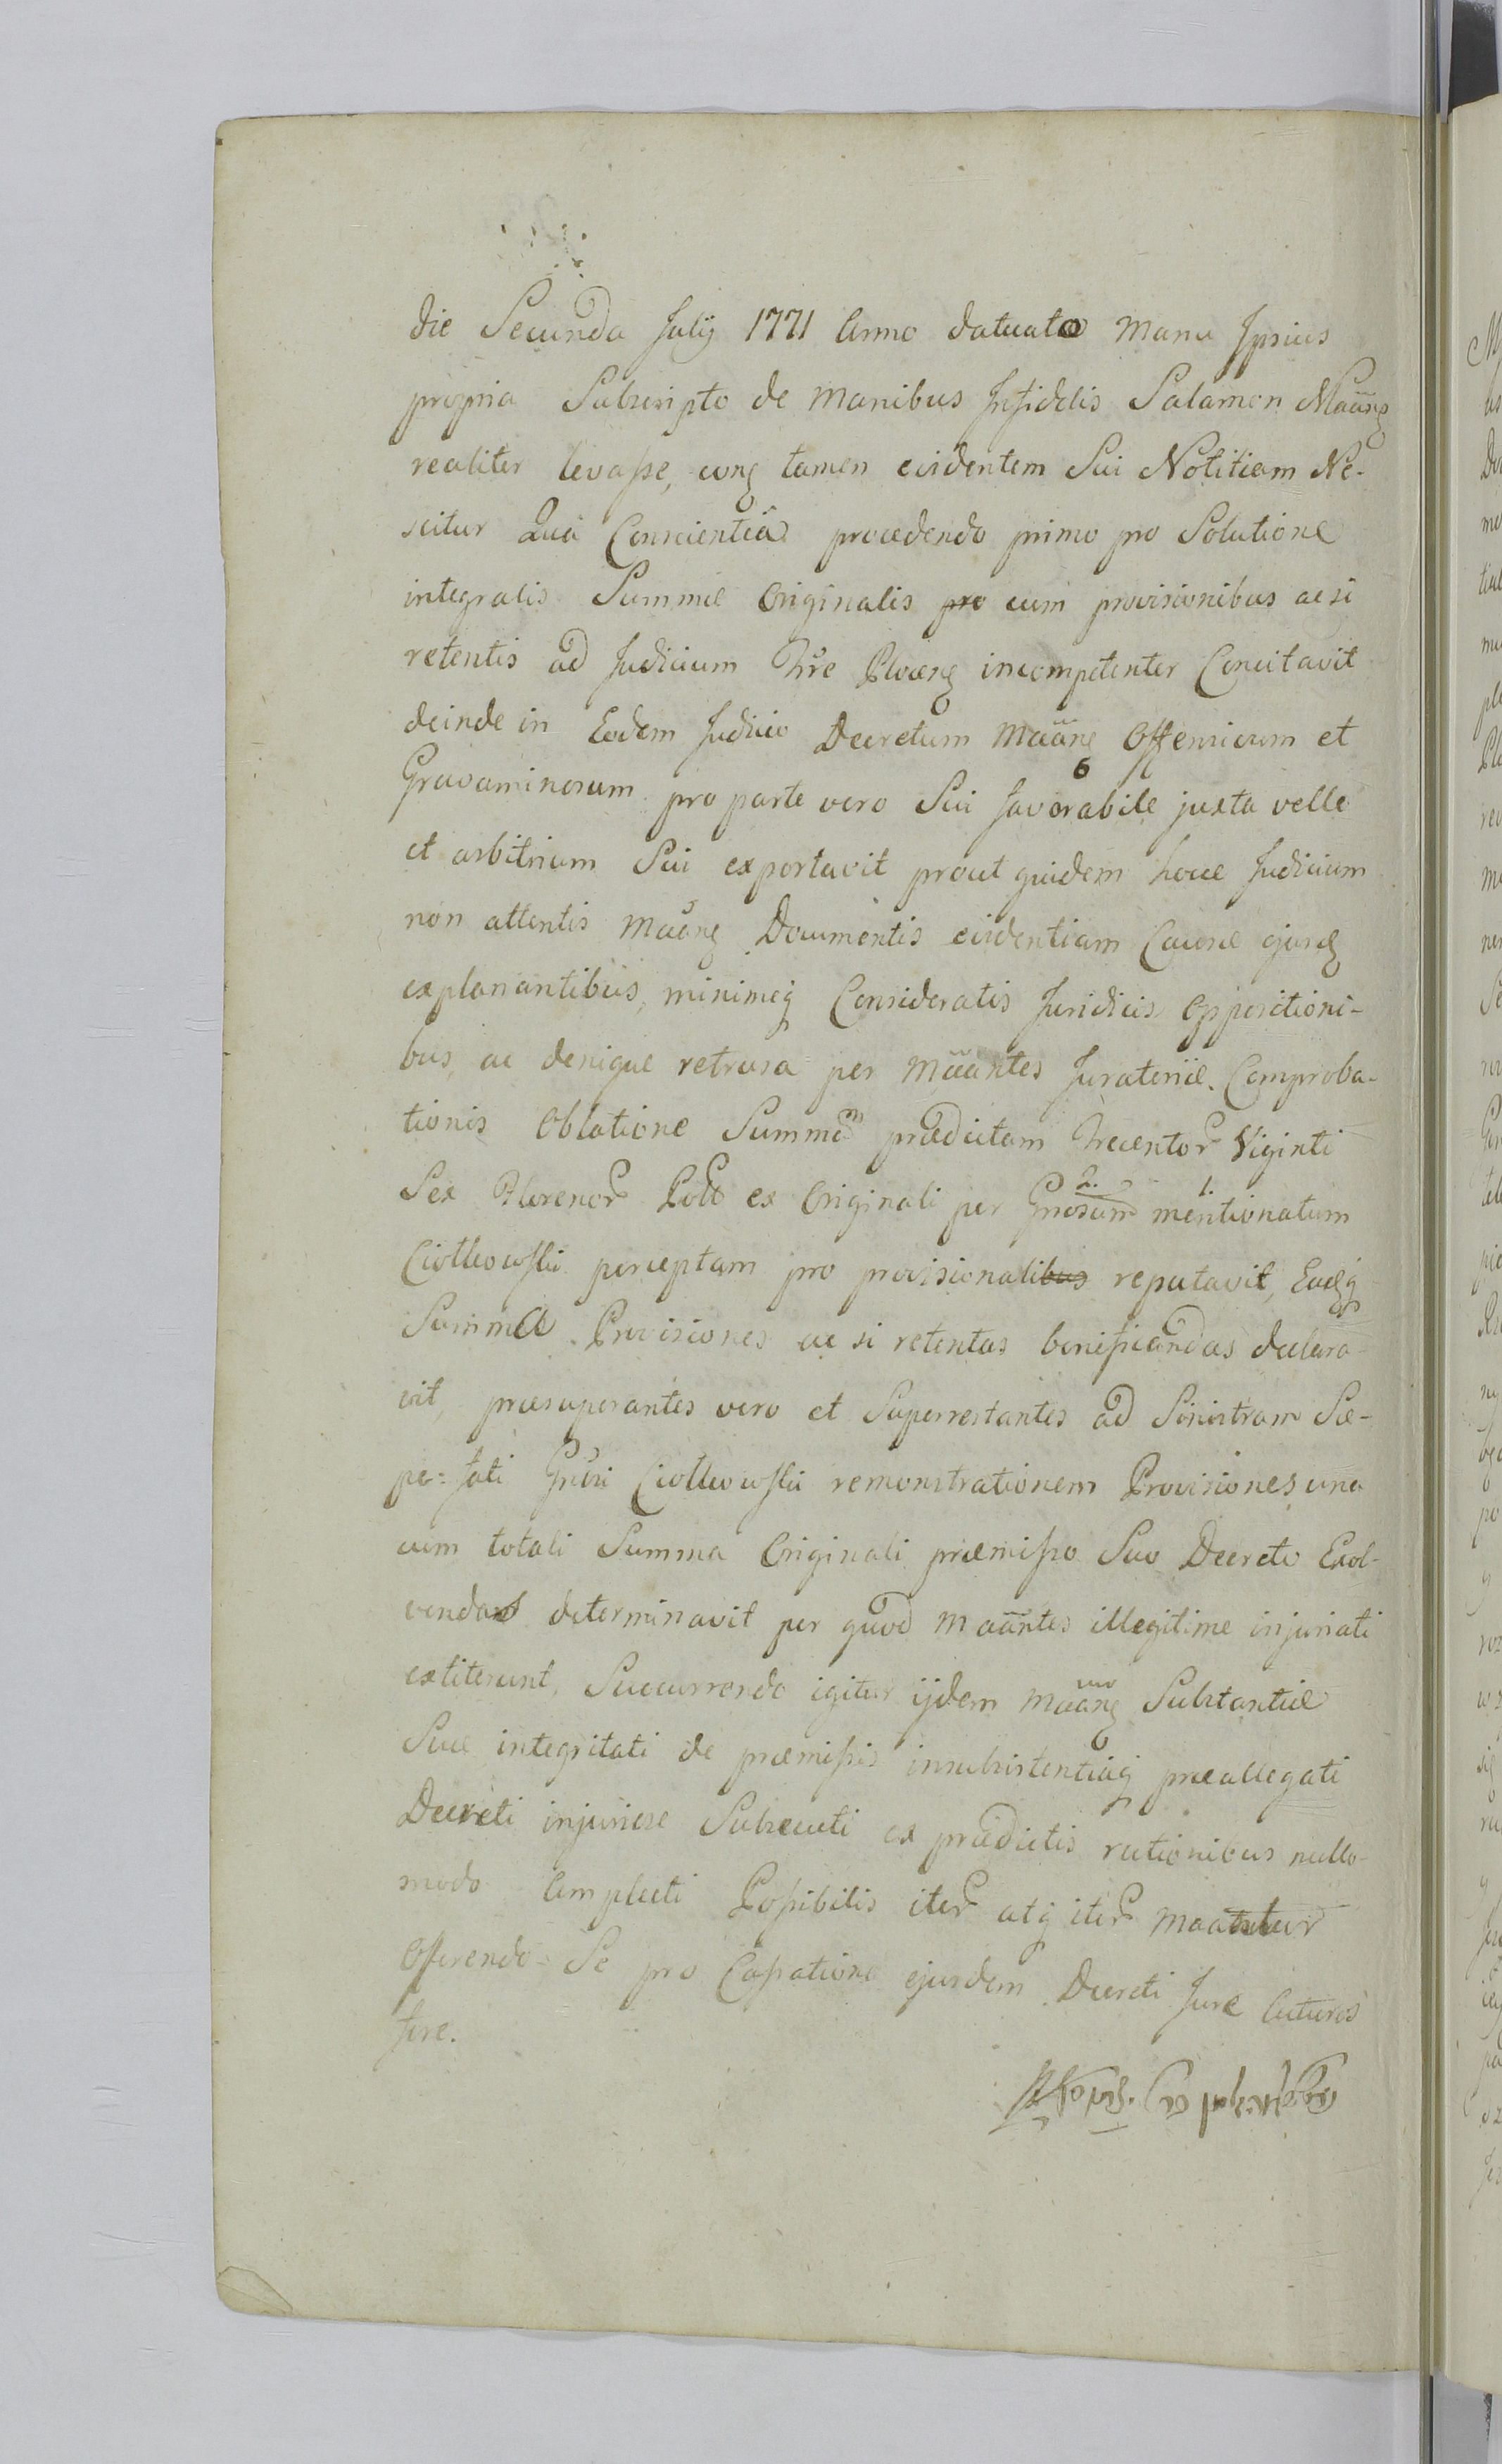 die Secunda Julij 1771 Anno datuato Manu Ipsius
propria Subscripto de Manibus Infidelis Salamon Maãng
realiter levasse, cung tamen evidentem Sui Notitiam Ne-
scitur Quâ Conscientiâ procedendo primo pro Solutione
integralis Summæ Originalis pro cum provisionibus ac si
retentis ad Judicium Incompetenter Concitavit
deinde in Eodem Judicio Decretum Maãng Offensivum et
Gravaminosum pro parte vero Sui favorabile juxta velle
et arbitrium Sui exportavit prout quidem hocce Judicium
non attentis Maãng Documentis evidentiam Causæ ejusd
explanantibus, minimeq Consideratis Juridicis Oppositioni-
bus, ac denique retrusa per Maãntes Juratoriæ Comproba-
tionis Oblatione Summam prædictam Trecentor Viginti
Sex Florenor Poll ex Originali per Gnosum mentionatum
Ciotkowski perceptam pro provisionalibus reputavit, Eadq
Summa Provisiones ac si retentas bonificandas declara-
vit, præsuperantes vero et Superrestantes ad Sinistram Sæ-
pe=fati Gnosi Ciotkowski remonstrationem Provisiones una
cum totali Summa Originali præmisso Suo Decreto Exol-
vendas determinavit per quod Maãntes illegitime injuriati
extiterunt, Succurrendo igitur ijdem Maãng Substantiæ
Suæ integritati de præmissis insubsistentiaq præallegati
Decreti injuriose Subsecuti ex prædictis rationibus nullo-
modo Amplecti Possibilis iter atq iter maantur
Offerendo Se pro Cassatione ejusdem Decreti Jure Acturos
fore.